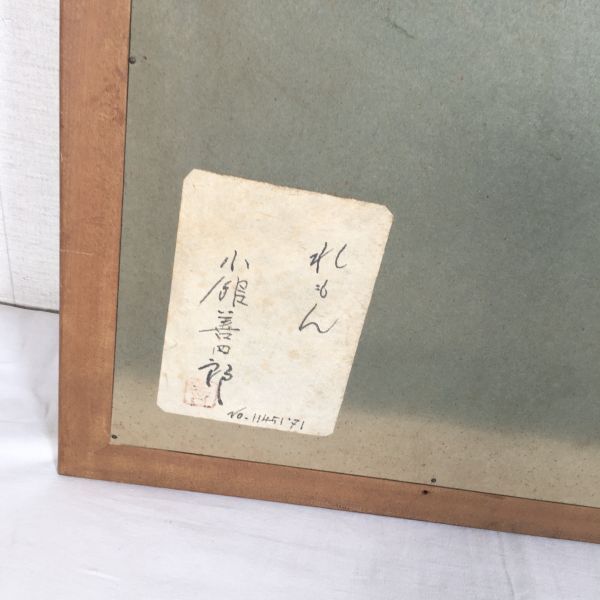 れもん
小館善四郎
No-11451'71